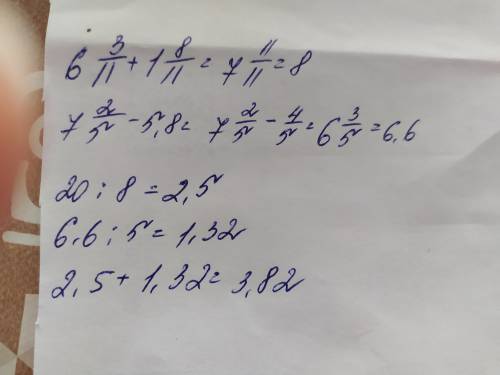 6 3/11 + 1 8/11 = 7 11/11 = 8
7 2/5 - 5,8 = 7 2/5 - 4/5 = 6 3/5 = 6,6
20 : 8 = 2,5
6,6 : 5 = 1,32
2,5 + 1,32 = 3,82